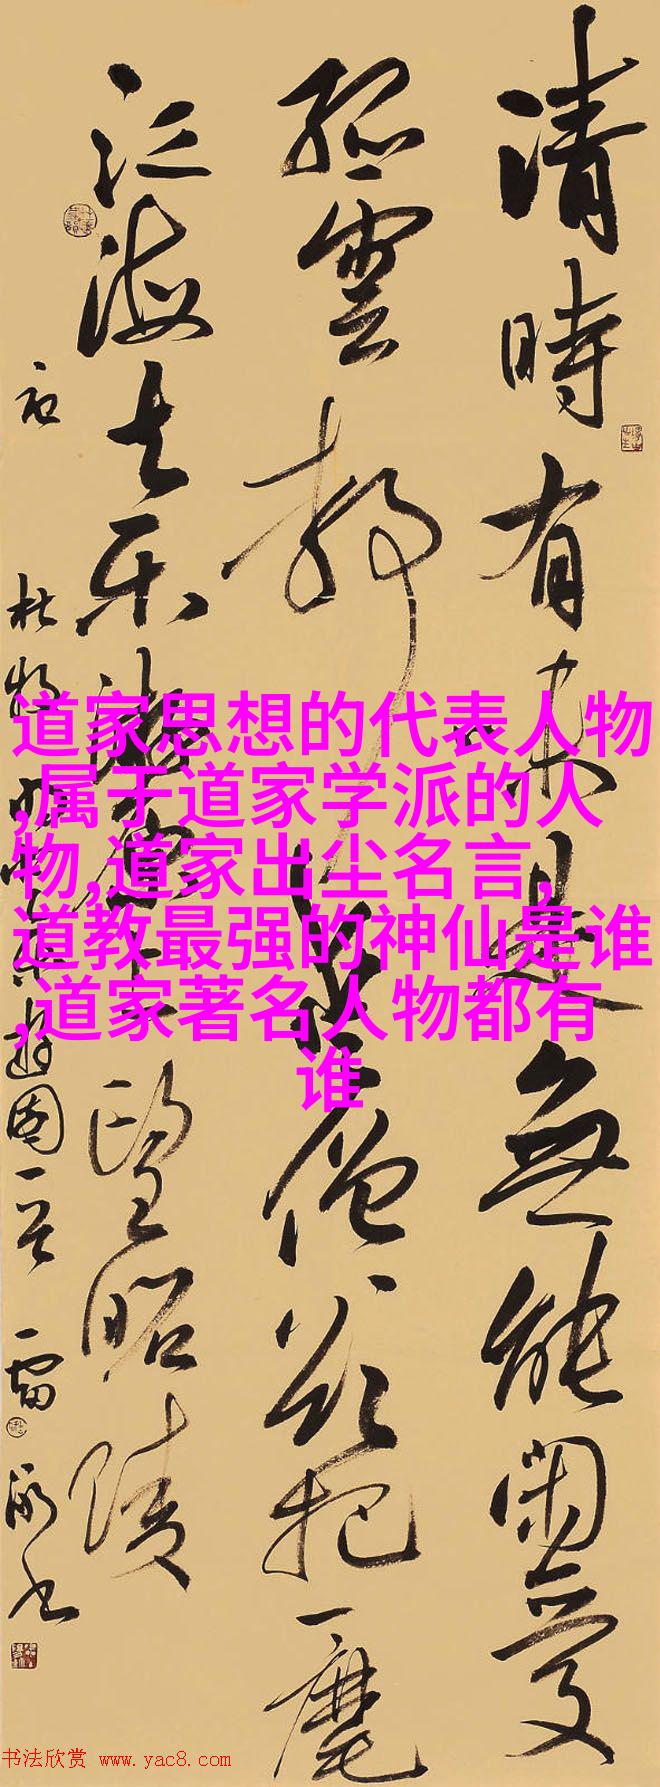 清時有味是無能閑愛
孤雲静愛僧欲把一麾
江海去乐游原上望昭陵
杜牧
道家思想的代表人物
,属于道家学派的人
物,道家出尘名言,
道教最强的神仙是谁
,道家著名人物都有
谁
书法欣赏 www.yac8.com